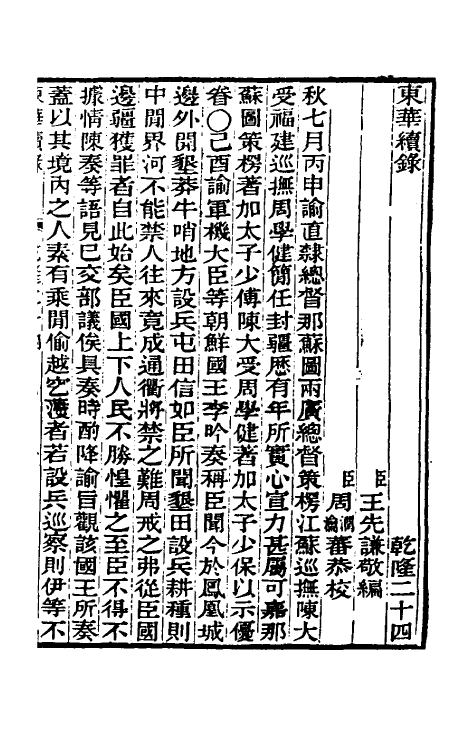 東華續錄 乾隆二十四
臣王先謙敬編
臣周潤蕃周瀹蕃恭校
秋七月丙申諭直隸總督那蘇圖兩廣總督策楞江蘇巡撫陳大
受福建巡撫周學健簡任封疆歷有年所實心宣力甚屬可嘉那
蘇圖策楞著加太子少傅陳大受周學健著加太子少保以示優
眷○己酉諭軍機大臣等朝鮮國王李昑奏稱臣聞今於鳳凰城
邊外開墾莽牛哨地方設兵屯田信如臣所聞墾田設兵耕種則
中間界河不能禁人往來竟成通衢將禁之難周戒之弗從臣國
邊疆獲罪者自此始矣臣國上下人民不勝惶懼之至臣不得不
據情陳奏等語見已交部議俟具奏時酌降諭旨觀該國王所奏
蓋以其境內之人素有乘間偷越之濅者若設兵巡察則伊等不